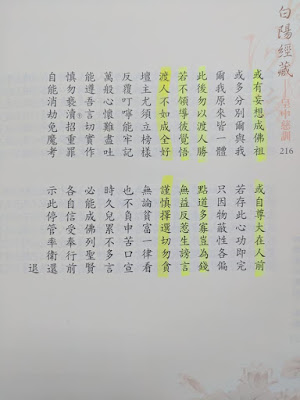 白陽經藏
皇申慈訓
216
或有妄想成佛祖　或自尊大在人前
或多分別爾與我　若存此心功即完
爾我原來皆一體　只因物蔽性各偏
此後勿以渡人勝　點道多寡豈為錢
若不領導彼覺悟　無益反惹生謗言
渡人不如成全好　謹慎擇選切勿貪
壇主尤須立榜樣　無論貧富一律看
反覆叮嚀能牢記　也不負申苦口宣
萬般心懷難盡吐　時久兒累不多言
能遵吾言切實作　必能成佛列聖賢
慎勿褻瀆招重罪　各自信受奉行前
自能消劫免魔考　示此停管率衛還
退